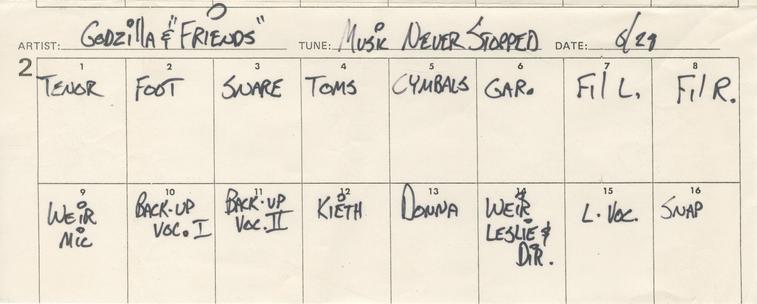 ARTIST: GODZILLA & "FRIENDS" TUNE: MUSIC NEVER STOPPED DATE: 6/29
2
1 2 3 4 5 6 7 8
TENOR FOOT SNARE TOMS CYMBALS GAR. Fi/ L. Fi/ R.
9 10 11 12 13 14 15 16
WEIR BACK-UP BACK-UP KIETH DONNA WEIR L. VOC. SNAP
MIC VOC. I VOC. II LESLIE &
DIR.